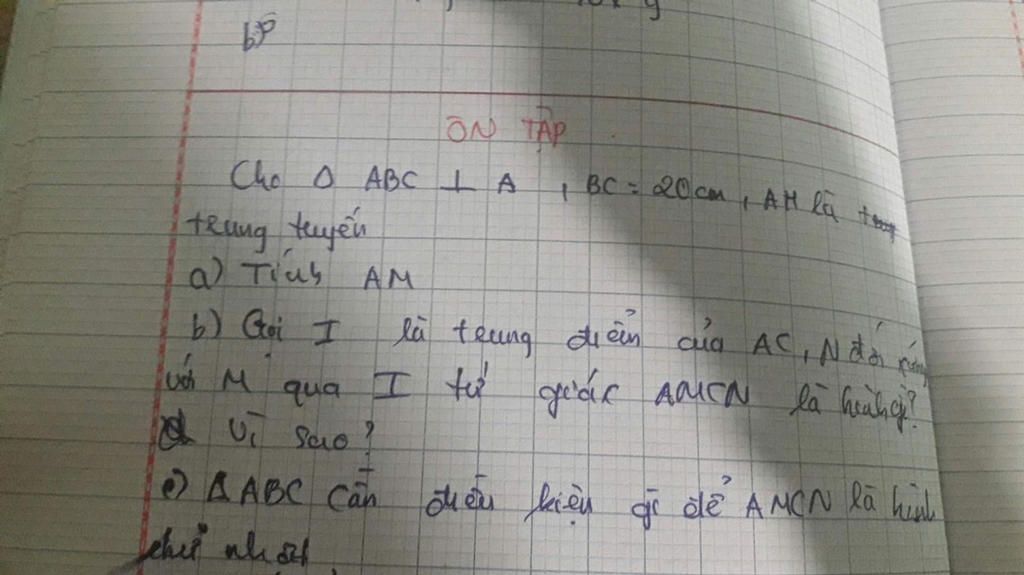 b)
ÔN TẬP
Cho Δ ABC ⊥ A , BC = 20cm, AM là
trung tuyến
a) Tính AM
b) Gọi I là trung điểm của AC, N đối xứng
với M qua I tứ giác AMCN là hình gì?
Vì sao?
c) Δ ABC cần điều kiện gì để AMCN là hình
chữ nhật